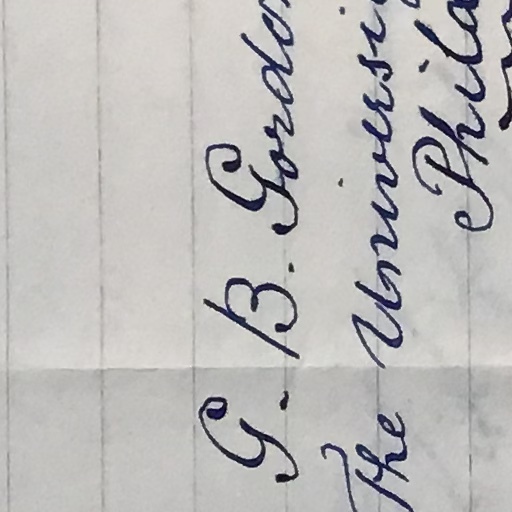 G. B. Gordon
The Universi
Phila